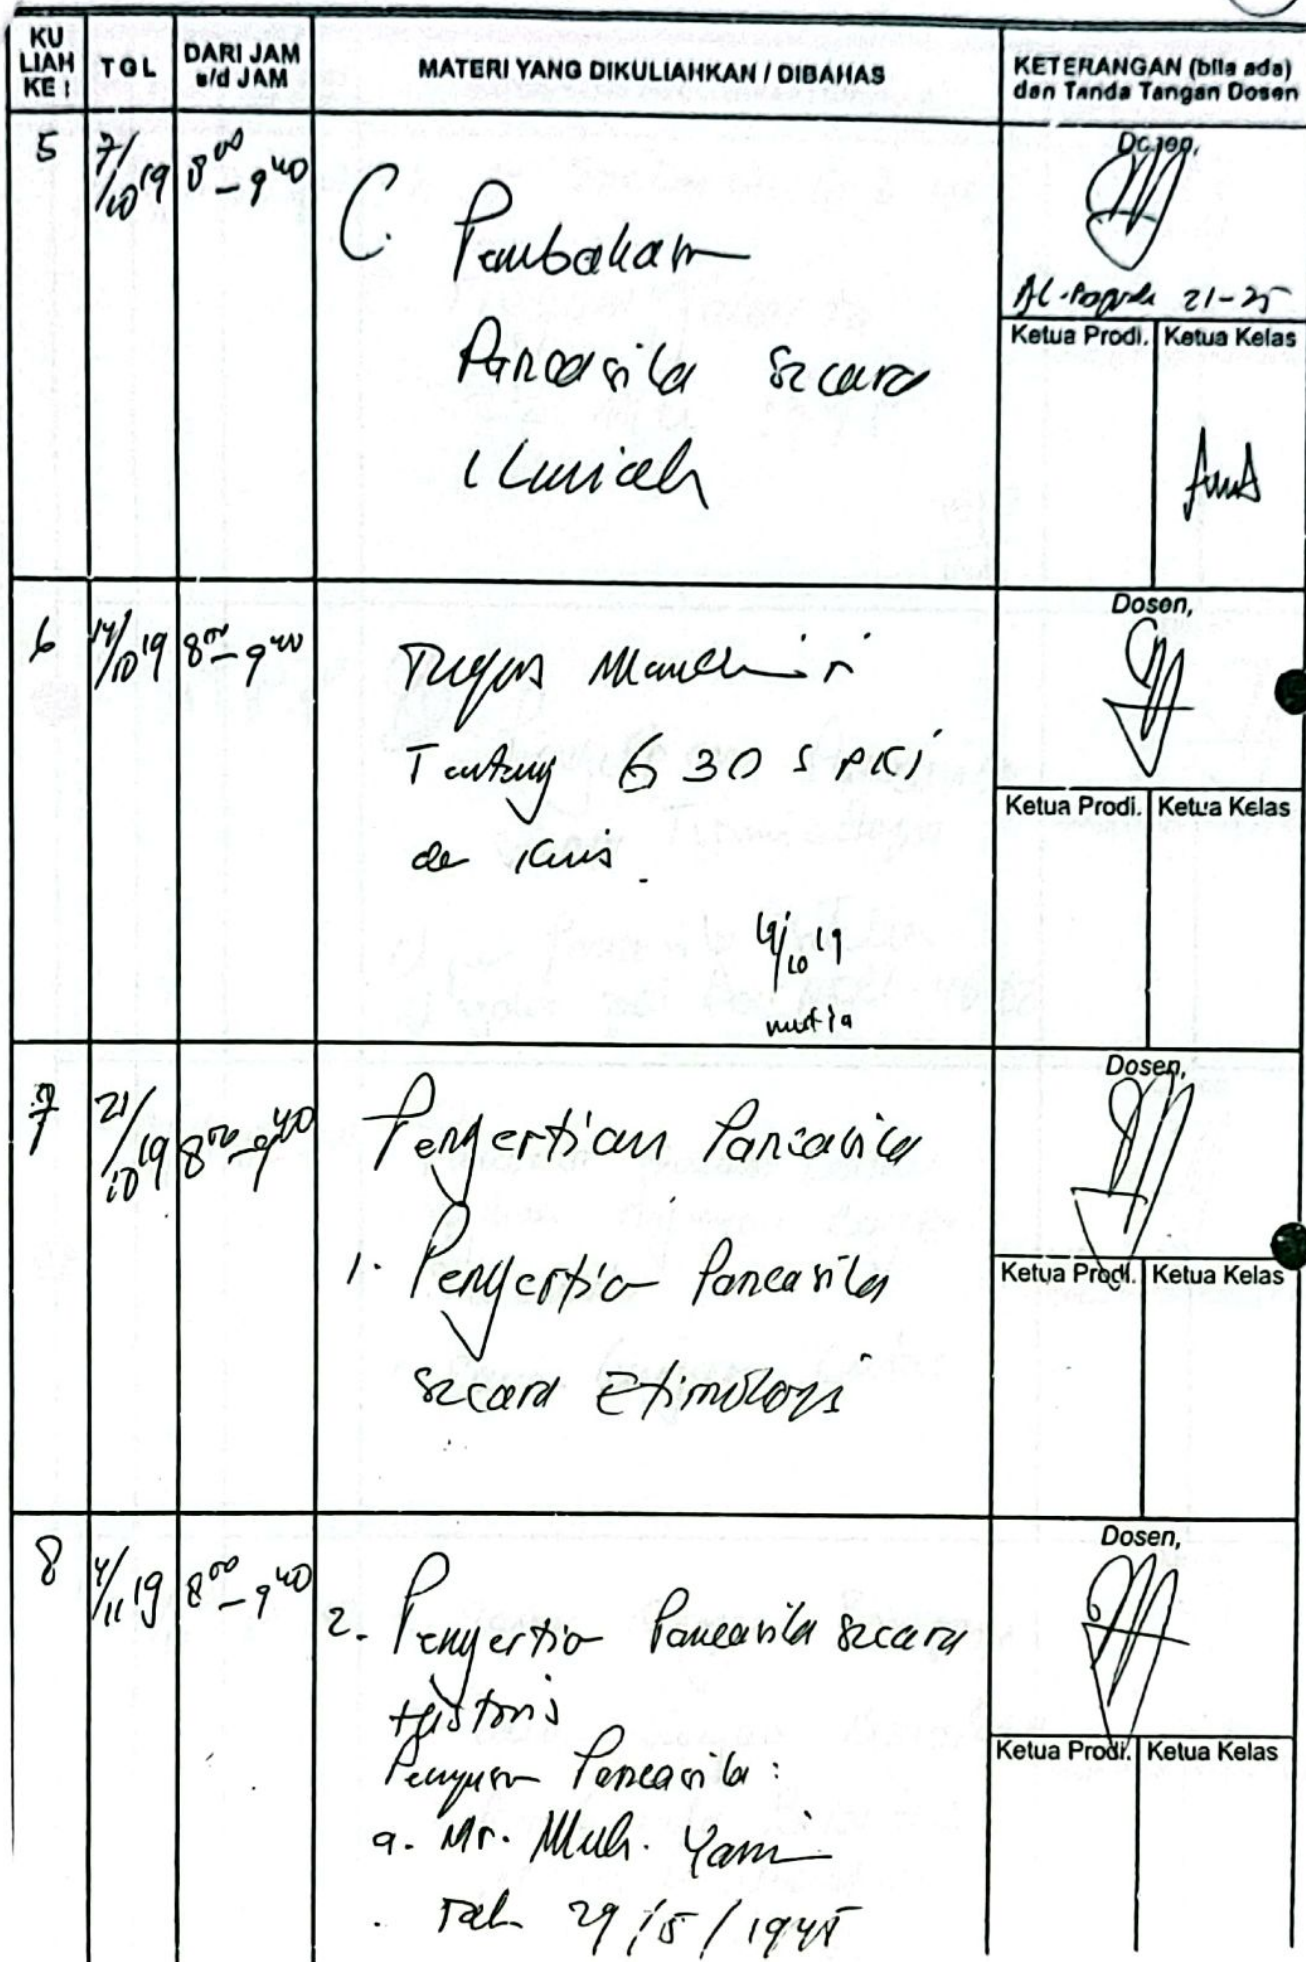 KU LIAH KE :
TGL
DARI JAM s/d JAM
MATERI YANG DIKULIAHKAN / DIBAHAS
KETERANGAN (bila ada) dan Tanda Tangan Dosen
5
7/10 19
8 00 - 9 40
C. Pembahasan
Pancasila secara
Ilmiah
Dosen,
21-25
Ketua Prodi. Ketua Kelas
6
14/10 19
8 00 - 9 40
Tugas Mandiri
Tentang G 30 S PKI
dan Kuis.
10 19
mutia
Dosen,
Ketua Prodi. Ketua Kelas
7
21/10 19
8 00 - 9 40
Pengertian Pancasila
1. Pengertian Pancasila
secara Etimologi
Dosen,
Ketua Prodi. Ketua Kelas
8
4/11 19
8 00 - 9 40
2. Pengertian Pancasila secara
Historis
Pancasila :
a. Mr. Muh. Yamin
29/5/1945
Dosen,
Ketua Prodi. Ketua Kelas